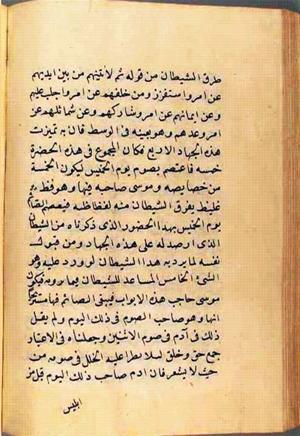 طرق الشيطان من قوله ثم لآتينهم من بين ايديهم
عن امر واستفزز ومن خلفهم عن امر واجلب عليهم
وعن ايمانهم عن امر وشاركهم وعن شمائلهم عن
امر وعدهم وهو بعينه في الوسط فان به تميزت
هذه الجهات الاربع فكان المجموع في هذه الحضرة
خمسة فاعتصم بصوم يوم الخميس ليكون الخمسة
من خصايصه وموسى صاحبه فيها وهو فظ
غليظ يفرق الشيطان منه لفظاظته فيعصم الصائم
يوم الخميس بهذا الحضور الذي ذكرناه من الشيطان
الذي ارصد له على هذه الجهات ومن قبول
نفسه لما يرد به هذا الشيطان لو ورد عليه وهو
الشيء الخامس المساعد للشيطان فيما يرومه فيكون
موسى حاجب هذه الابواب فيبقى الصائم فيها مستريحا
انها وهو صاحب الصوم في ذلك اليوم ولم يفعل
ذلك في آدم في صوم الاثنين وجعلناه في الاعتبار
جمع حق وخلق ليلا يطرا عليه الخلل في صومه من
حيث لا يشعر فان ادم صاحب ذلك اليوم قبل من
ابليس